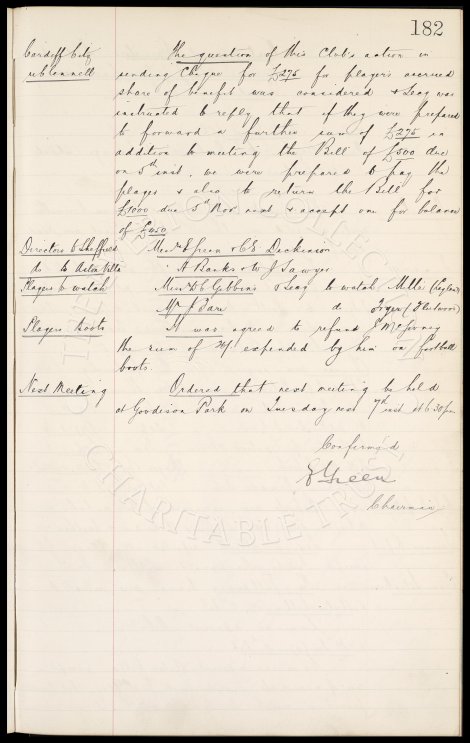 182
Cardiff City The question of this Club's action in
re Clennell sending Cheque for £275 for player's accrued
share of benefit was considered & Secy was
instructed to reply that if they were prepared
to forward a further sum of £275 in
addition to meeting the Bill of £500 due
on 5th inst, we were prepared to pay the
player & also to return the Bill for
£1000 due 5th Nov next & accept one for balance
of £450
Directors to Sheffield Messrs E Green & C E Dickinson
do to Aston Villa " A Banks & W J Sawyer
Players to watch Messrs W C Gibbins & Secy to watch Mills
Mr J Fare do (Fleetwood)
Players boots It was agreed to refund
the sum of expended by him on football
boots.
Next Meeting Ordered that next meeting be held
at Goodison Park on Tuesday next 7th inst at 6.30 pm
Confirmed
E Green
Chairman
CHARITABLE TRUST